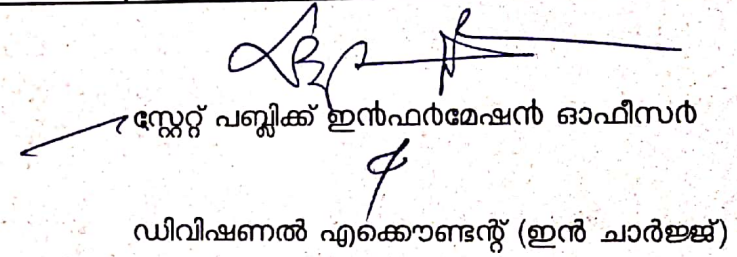 സ്റ്റേറ്റ് പബ്ലിക്ക് ഇൻഫർമേഷൻ ഓഫീസർ
&
ഡിവിഷണൽ എക്കൌണ്ടന്റ് (ഇൻ ചാർജ്ജ്)